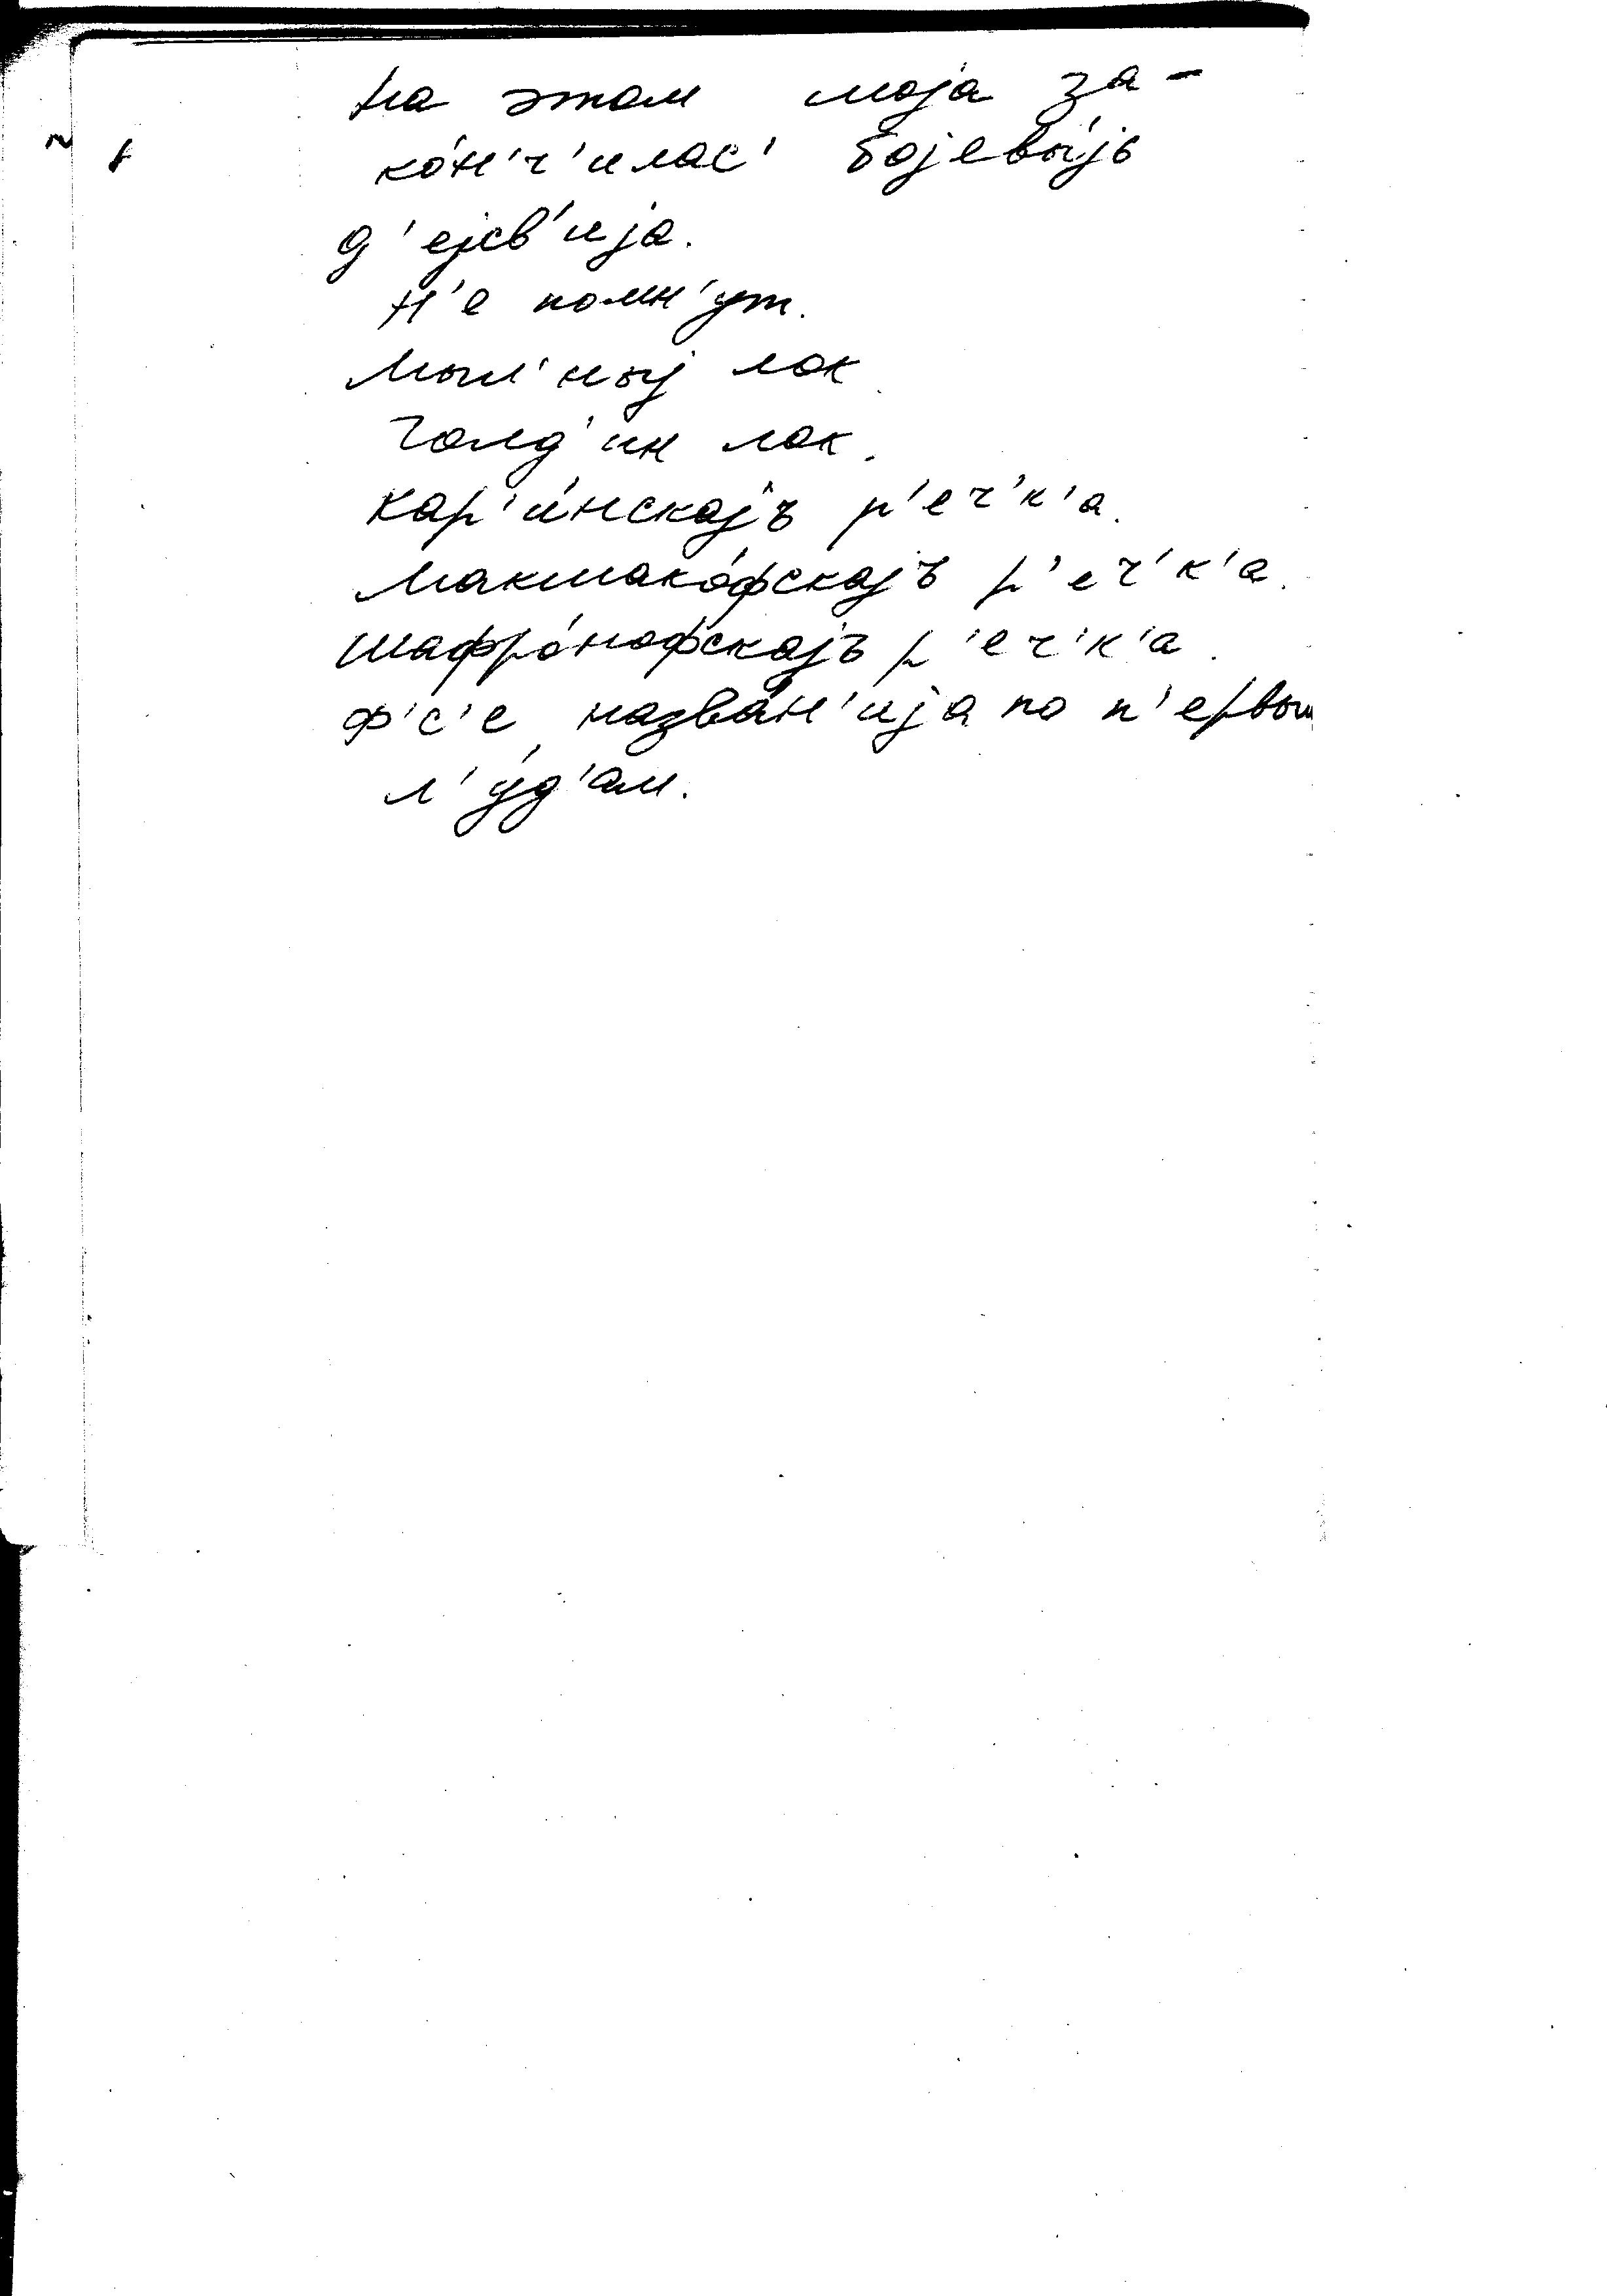 на этом моjа за-
ко́н'ч'илас' бојевы́јь
д'ејсв'ија.
н'е помн'ут.
лок
Голд'ин лок.
Кар'и́нскајъ р'еч'к'а.
Макмако́фскајъ р'еч'к'а.
шафро́нофскајъ р'еч'к'а.
ф'с'е назва́н'ија по п'ервым
л'у́д'ам.